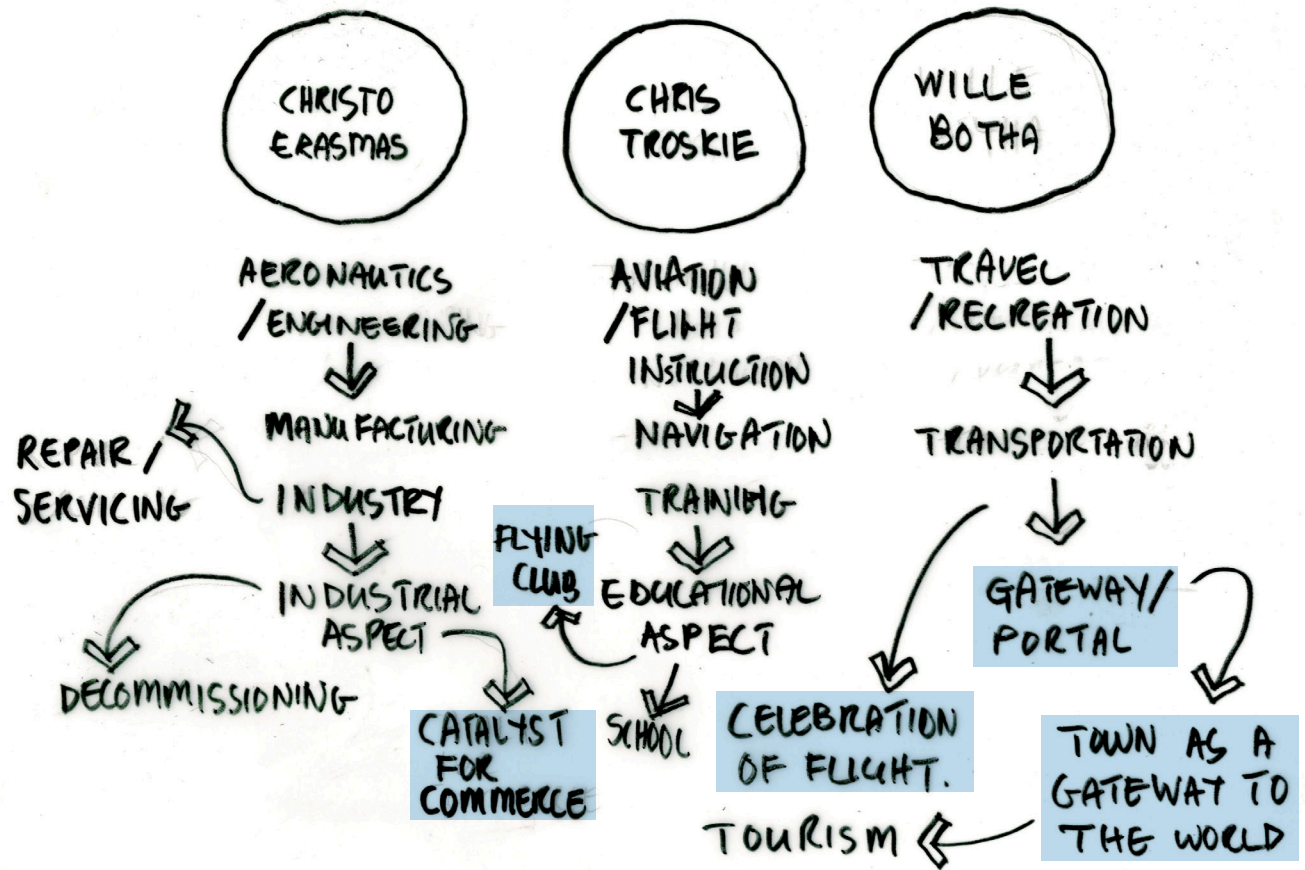 CHRISTO
ERASMAS
AERONAUTICS
/ENGINEERING
MANUFACTURING
REPAIR /
SERVICING
INDUSTRY
INDUSTRIAL
ASPECT
DECOMMISSIONING
CATALYST
FOR
COMMERCE
CHRIS
TROSKIE
AVIATION
/FLIGHT
INSTRUCTION
NAVIGATION
TRAINING
FLYING
CLUB
EDUCATIONAL
ASPECT
SCHOOL
WILLE
BOTHA
TRAVEL
/RECREATION
TRANSPORTATION
GATEWAY/
PORTAL
CELEBRATION
OF FLIGHT.
TOWN AS A
GATEWAY TO
THE WORLD
TOURISM